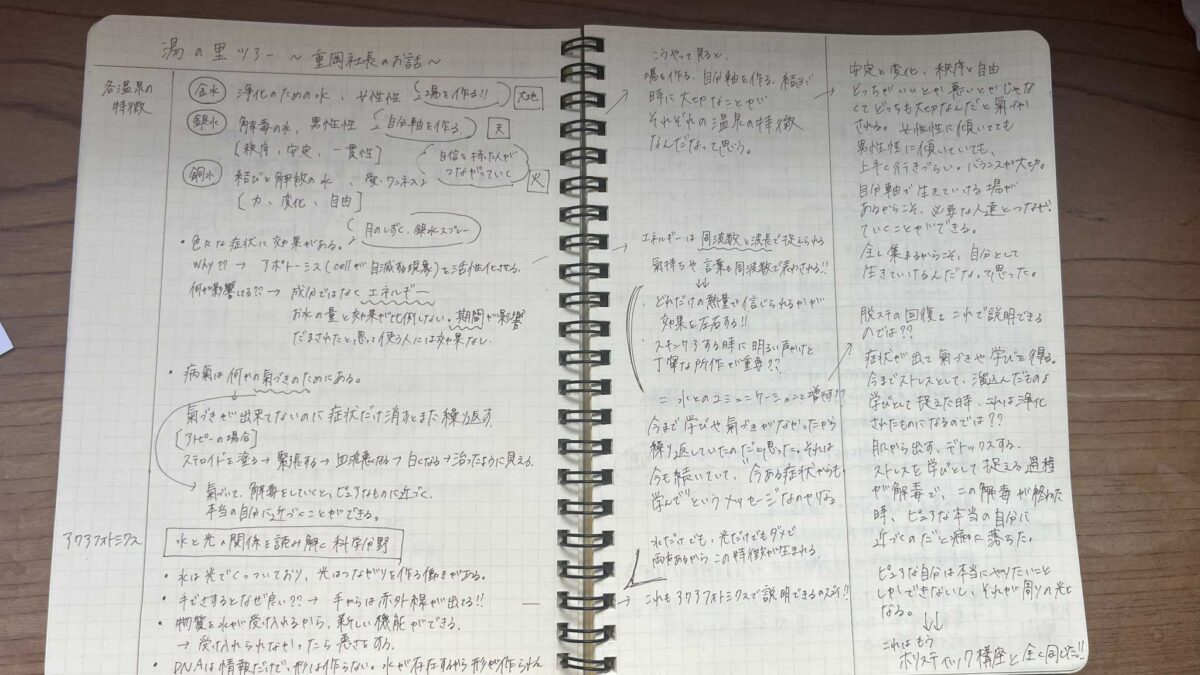 湯の里ツアー 〜重岡社長のお話〜
各温泉の
特徴
金水 浄化のための水、女性性 場を作る!! 大地
銀水 解毒の水、男性性 自分軸を作る 天
[秩序、安定、一貫性]
自信を持った人が
つながっていく
銅水 結びと解放の水、 火
[力、変化、自由]
月のしずく、銀水スプレー
・色々な症状に効果がある。
Why?? → アポトーシス(cellが自滅する現象)を活性化させる。
何が影響してる?? → 成分ではなくエネルギー
お水の量と効果が比例しない。期間が影響
だまされたと思って使う人には効果なし。
・病氣は何かの氣づきのためにある。
氣づきが出来てないのに症状だけ消すとまた繰り返す
[アトピーの場合]
ステロイドを塗る→緊張する→血流悪くなる→白くなる→治ったように見える.
氣づいて、解毒をしていくと、ピュアなものに近づく。
本当の自分に近づくことができる。
アクアフォトミクス
水と光の関係を読み解く科学分野
・水は光でくっついており、光はつながりを作る働きがある。
・手でさするとなぜ良い?? → 手からは赤外線が出てる!!
・物質を水が受け入れるから、新しい機能ができる.
→ 受け入れられなかったら悪さをする.
・DNAは情報だけで、形は作らない。水が存在するから形が作られる
こうやって見ると、
場を作る、自分軸を作る、結ぶ
時に大切なことが
それぞれの温泉の特徴
なんだなって思う。
エネルギーは周波数と波長で捉えられる
氣持ちや言葉も周波数で表わされる!!
・どれだけの熱量で信じられるかが
効果を左右する!!
・スキンケアする時に明るい声かけと
丁寧な所作が重要??
= 水とのコミュニケーションを増やす??
今まで学びや氣づきがなかったから
繰り返していたのだと思った。それは
今も続いていて、今ある症状からも
学んでというメッセージなのかな。
水だけでも、光だけでもダメで
両方あるからこの特徴が生まれる
→ これもアクアフォトミクスで説明できるのでは!!
安定と変化、秩序と自由
どっちがいいとか悪いとかじゃな
くてどっちも大切なんだと氣づか
される。女性性に傾いてても
男性性に傾いていても、
上手く行きづらい。バランスが大切。
自分軸で生きていける場が
あるからこそ、必要な人達とつなぜ
ていくことができる。
全し集まるからこそ、自分として
生きていけるんだなって思った。
脱ステの回復もこれで説明できる
のでは??
症状が出て氣づきや学びを得る。
今までストレスとして、溜込んだものを
学びとして捉えた時、これは浄化
されたものになるのでは??
肌から出す、デトックスする.
ストレスを学びとして捉える過程
が解毒で、この解毒が終わった
時、ピュアな本当の自分に
近づくのだと腑に落ちた。
ピュアな自分は本当にやりたいこと
しかできないし、それが周りの光と
なる。
これはもう
ホリスティック講座と全く同じだ!!